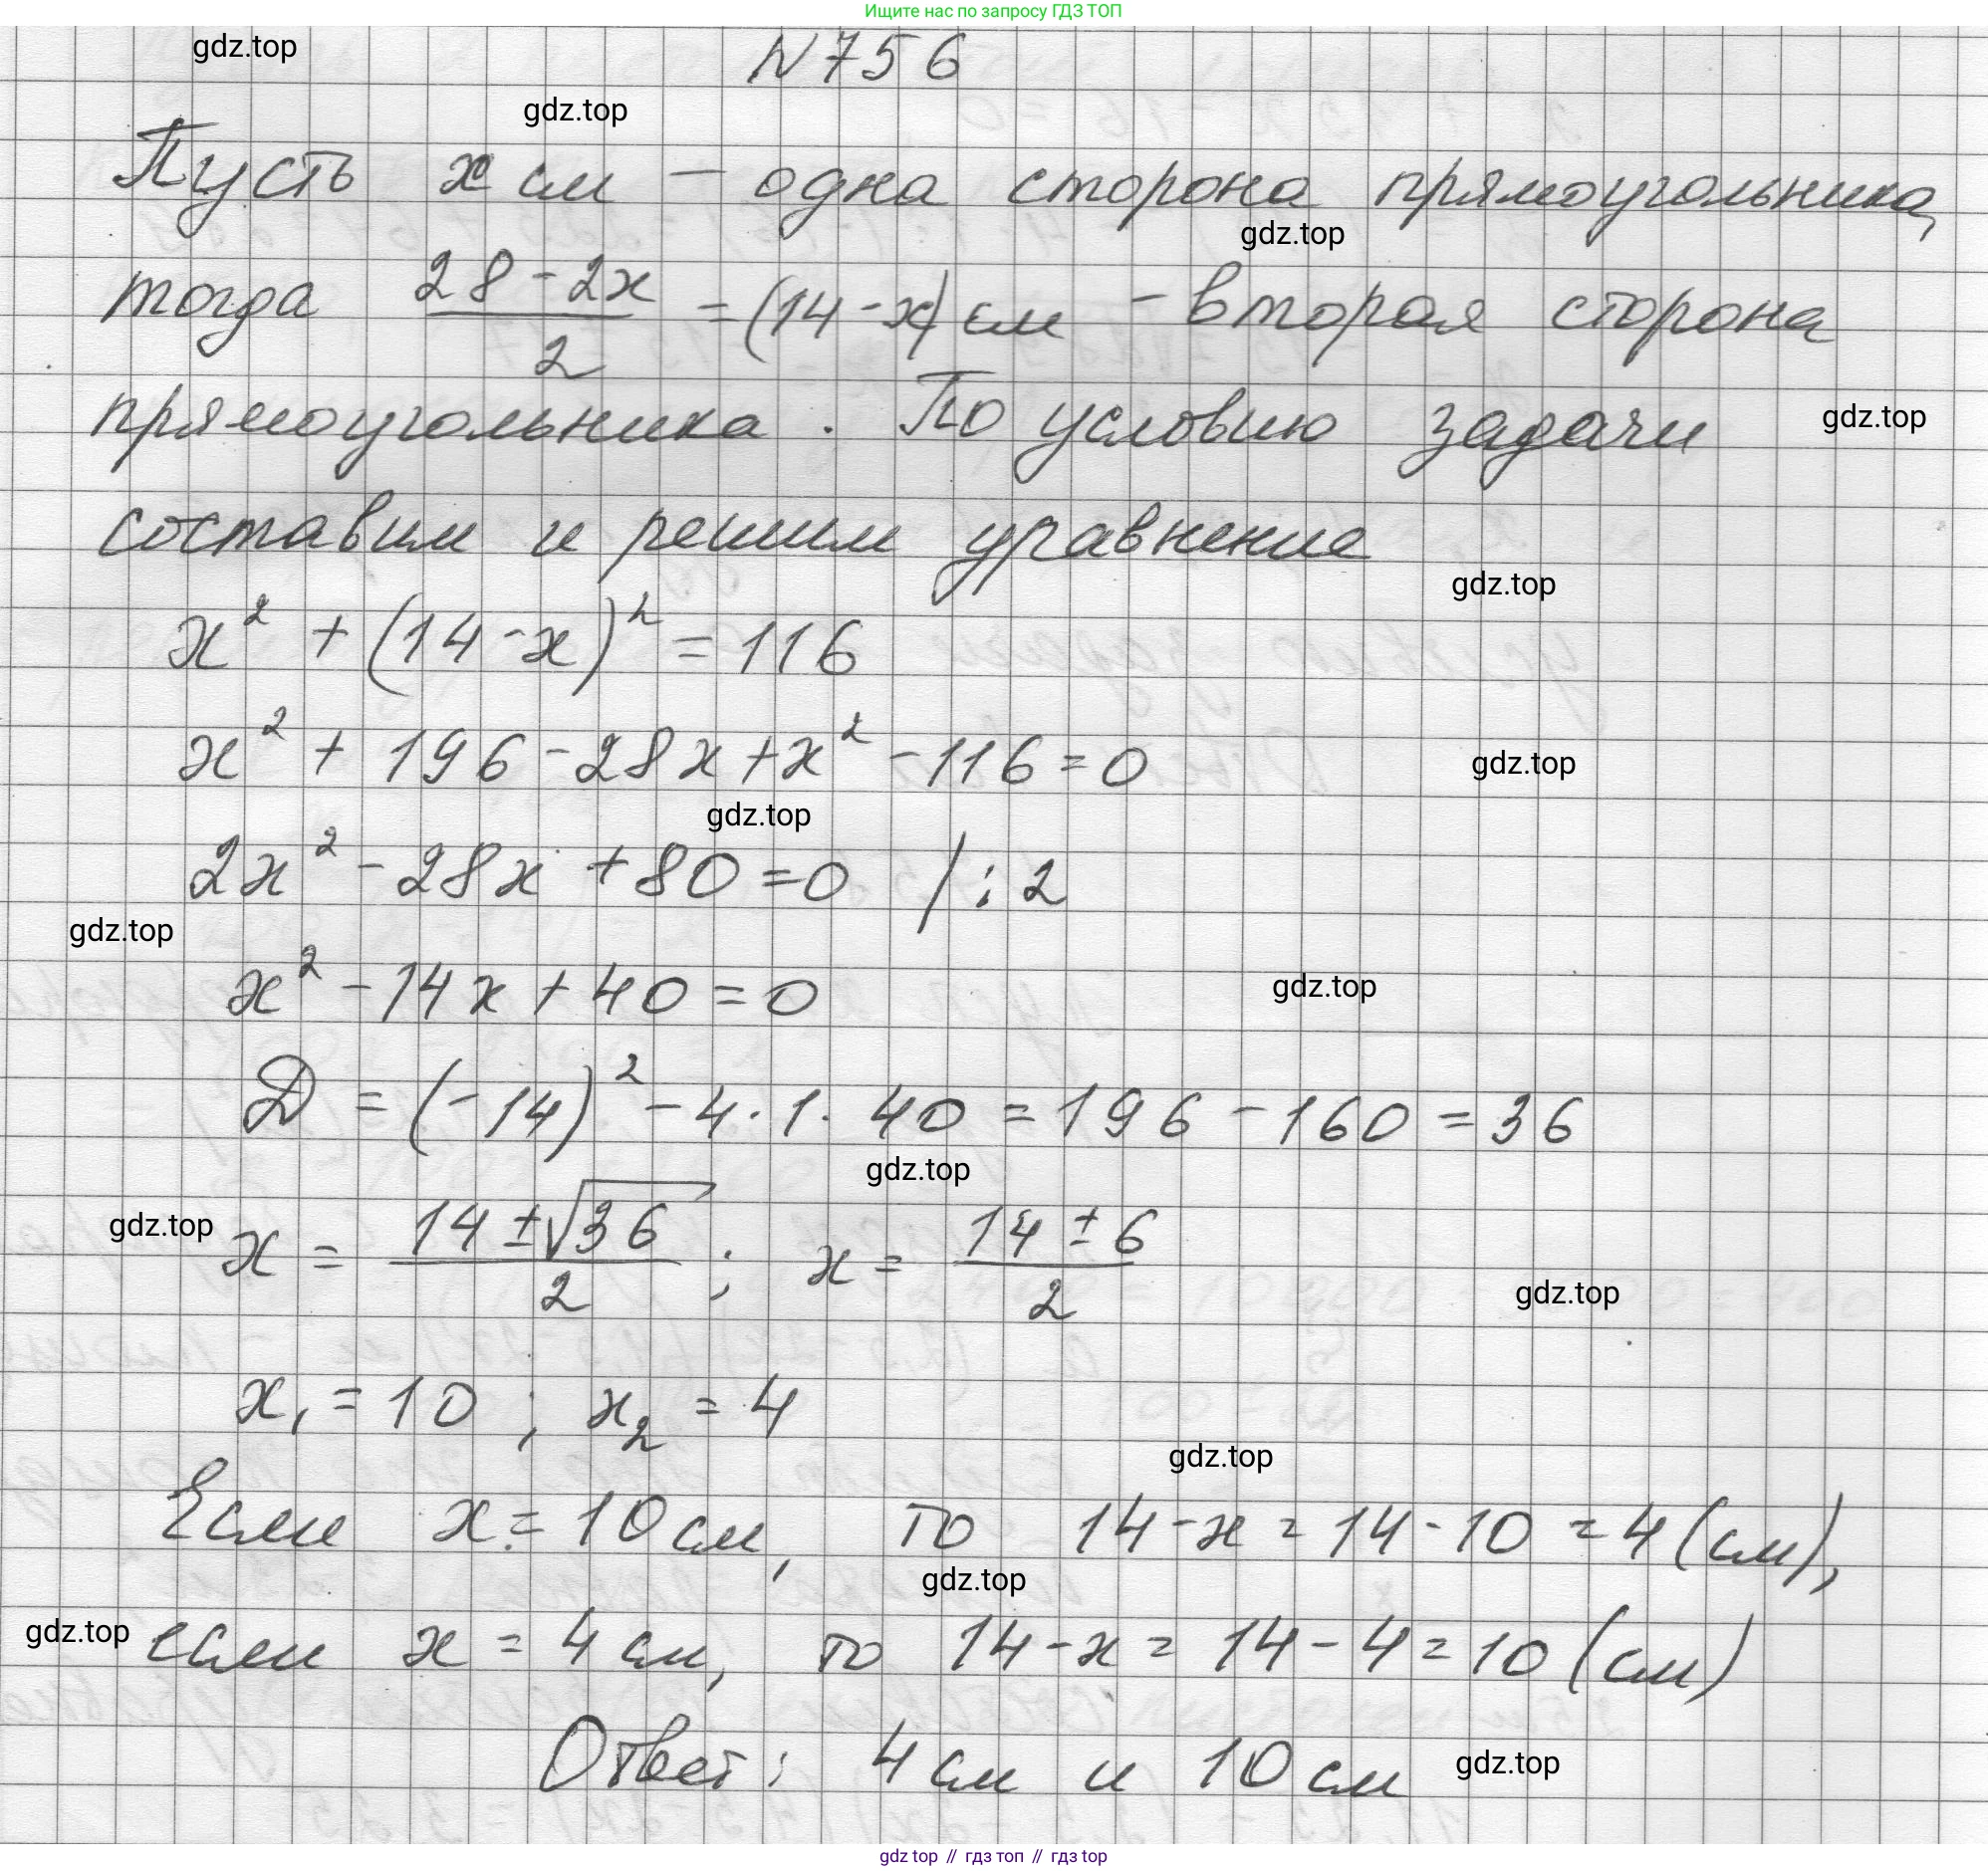 Ищите нас по запросу ГДЗ ТОП
gdz.top
N 756
gdz.top
Пусть x см – одна сторона прямоугольника,
gdz.top
тогда (28 - 2x)/2 = (14 - x) см – вторая сторона
прямоугольника. По условию задачи
gdz.top
составим и решим уравнение
gdz.top
x² + (14 - x)² = 116
x² + 196 - 28x + x² - 116 = 0
gdz.top
gdz.top
2x² - 28x + 80 = 0 / : 2
gdz.top
x² - 14x + 40 = 0
gdz.top
D = (-14)² - 4 · 1 · 40 = 196 - 160 = 36
gdz.top
gdz.top
x = (14 ± √36)/2 ; x = (14 ± 6)/2
gdz.top
x₁ = 10 ; x₂ = 4
gdz.top
Если x = 10 см, то 14 - x = 14 - 10 = 4 (см),
gdz.top
gdz.top
если x = 4 см, то 14 - x = 14 - 4 = 10 (см)
Ответ: 4 см и 10 см
gdz.top
gdz top // гдз топ // гдз top